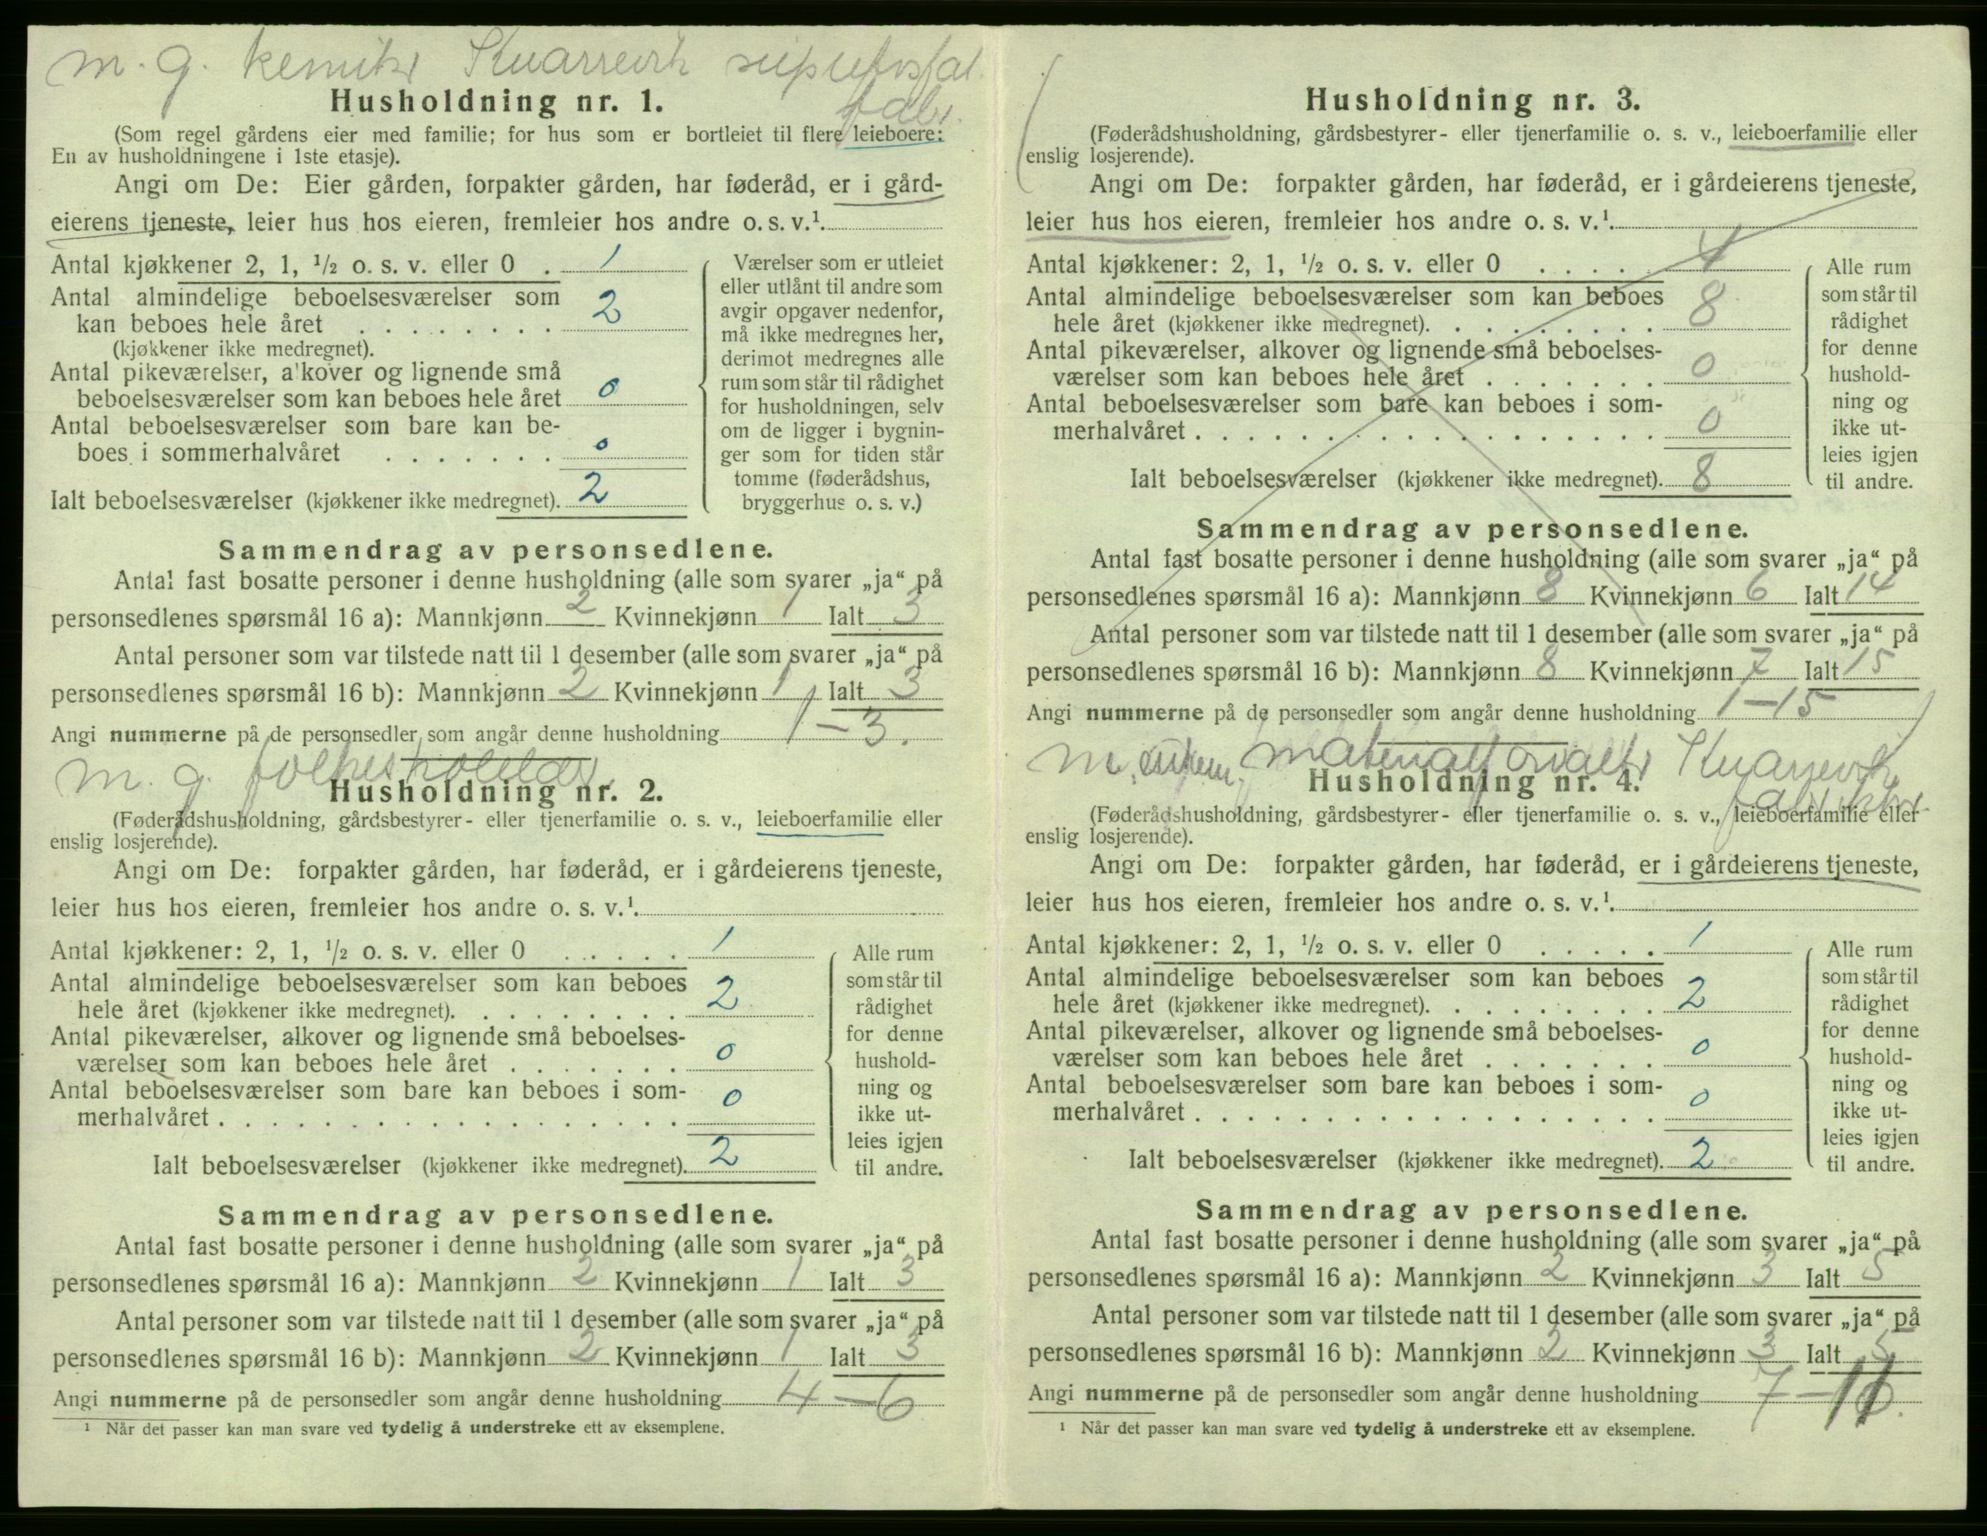 m. g. kemiker Knarrevik superfosfat
fabr.
Husholdning nr. 1.
(Som regel gårdens eier med familie; for hus som er bortleiet til flere leieboere:
En av husholdningene i 1ste etasje).
Angi om De: Eier gården, forpakter gården, har føderåd, er i gård-
eierens tjeneste, leier hus hos eieren, fremleier hos andre o. s. v.¹
Antal kjøkkener 2, 1, ½ o. s. v. eller 0 . 1
Antal almindelige beboelsesværelser som
kan beboes hele året . . . . . . . . 2
(kjøkkener ikke medregnet).
Antal pikeværelser, alkover og lignende små
beboelsesværelser som kan beboes hele året 0
Antal beboelsesværelser som bare kan be-
boes i sommerhalvåret . . . . . . . 0
Ialt beboelsesværelser (kjøkkener ikke medregnet). 2
Værelser som er utleiet
eller utlånt til andre som
avgir opgaver nedenfor,
må ikke medregnes her,
derimot medregnes alle
rum som står til rådighet
for husholdningen, selv
om de ligger i bygnin-
ger som for tiden står
tomme (føderådshus,
bryggerhus o. s. v.)
Sammendrag av personsedlene.
Antal fast bosatte personer i denne husholdning (alle som svarer „ja“ på
personsedlenes spørsmål 16 a): Mannkjønn 2 Kvinnekjønn 1 Ialt 3
Antal personer som var tilstede natt til 1 desember (alle som svarer „ja“ på
personsedlenes spørsmål 16 b): Mannkjønn 2 Kvinnekjønn 1 Ialt 3
Angi nummerne på de personsedler som angår denne husholdning 1 – 3.
m. g.
Husholdning nr. 2.
(Føderådshusholdning, gårdsbestyrer- eller tjenerfamilie o. s. v., leieboerfamilie eller
enslig losjerende).
Angi om De: forpakter gården, har føderåd, er i gårdeierens tjeneste,
leier hus hos eieren, fremleier hos andre o. s. v.¹.
Antal kjøkkener: 2, 1, ½ o. s. v. eller 0 . . . . . 1
Antal almindelige beboelsesværelser som kan beboes
hele året (kjøkkener ikke medregnet). . . . . . . . . 2
Antal pikeværelser, alkover og lignende små beboelses-
værelser som kan beboes hele året . . . . . . . 0
Antal beboelsesværelser som bare kan beboes i som-
merhalvåret . . . . . . . . . . . . . . . . . . 0
Ialt beboelsesværelser (kjøkkener ikke medregnet). 2
Alle rum
som står til
rådighet
for denne
hushold-
ning og
ikke ut-
leies igjen
til andre.
Sammendrag av personsedlene.
Antal fast bosatte personer i denne husholdning (alle som svarer „ja“ på
personsedlenes spørsmål 16 a): Mannkjønn 2 Kvinnekjønn 1 Ialt 3
Antal personer som var tilstede natt til 1 desember (alle som svarer „ja“ på
personsedlenes spørsmål 16 b): Mannkjønn 2 Kvinnekjønn 1 Ialt 3
Angi nummerne på de personsedler som angår denne husholdning 4 – 6
¹ Når det passer kan man svare ved tydelig å understreke ett av eksemplene.
Husholdning nr. 3.
(Føderådshusholdning, gårdsbestyrer- eller tjenerfamilie o. s. v., leieboerfamilie eller
enslig losjerende).
Angi om De: forpakter gården, har føderåd, er i gårdeierens tjeneste,
leier hus hos eieren, fremleier hos andre o. s. v.¹.
Antal kjøkkener: 2, 1, ½ o. s. v. eller 0 . . . . . 4
Antal almindelige beboelsesværelser som kan beboes
hele året (kjøkkener ikke medregnet). . . . . . . . . 8
Antal pikeværelser, alkover og lignende små beboelses-
værelser som kan beboes hele året . . . . . . . 0
Antal beboelsesværelser som bare kan beboes i som-
merhalvåret . . . . . . . . . . . . . . . . . . 0
Ialt beboelsesværelser (kjøkkener ikke medregnet). 8
Alle rum
som står til
rådighet
for denne
hushold-
ning og
ikke ut-
leies igjen
til andre.
Sammendrag av personsedlene.
Antal fast bosatte personer i denne husholdning (alle som svarer „ja“ på
personsedlenes spørsmål 16 a): Mannkjønn 8 Kvinnekjønn 6 Ialt 14
Antal personer som var tilstede natt til 1 desember (alle som svarer „ja“ på
personsedlenes spørsmål 16 b): Mannkjønn 8 Kvinnekjønn 7 Ialt 15
Angi nummerne på de personsedler som angår denne husholdning 1 – 15
m. materialforvalter Knarrevik
Husholdning nr. 4.
(Føderådshusholdning, gårdsbestyrer- eller tjenerfamilie o. s. v., leieboerfamilie eller
enslig losjerende).
Angi om De: forpakter gården, har føderåd, er i gårdeierens tjeneste,
leier hus hos eieren, fremleier hos andre o. s. v.¹.
Antal kjøkkener: 2, 1, ½ o. s. v. eller 0 . . . . . 1
Antal almindelige beboelsesværelser som kan beboes
hele året (kjøkkener ikke medregnet). . . . . . . . . 2
Antal pikeværelser, alkover og lignende små beboelses-
værelser som kan beboes hele året . . . . . . . 0
Antal beboelsesværelser som bare kan beboes i som-
merhalvåret . . . . . . . . . . . . . . . . . . 0
Ialt beboelsesværelser (kjøkkener ikke medregnet). 2
Alle rum
som står til
rådighet
for denne
hushold-
ning og
ikke ut-
leies igjen
til andre.
Sammendrag av personsedlene.
Antal fast bosatte personer i denne husholdning (alle som svarer „ja“ på
personsedlenes spørsmål 16 a): Mannkjønn 2 Kvinnekjønn 3 Ialt 5
Antal personer som var tilstede natt til 1 desember (alle som svarer „ja“ på
personsedlenes spørsmål 16 b): Mannkjønn 2 Kvinnekjønn 3 Ialt 5
Angi nummerne på de personsedler som angår denne husholdning 7 – 11
¹ Når det passer kan man svare ved tydelig å understreke ett av eksemplene.